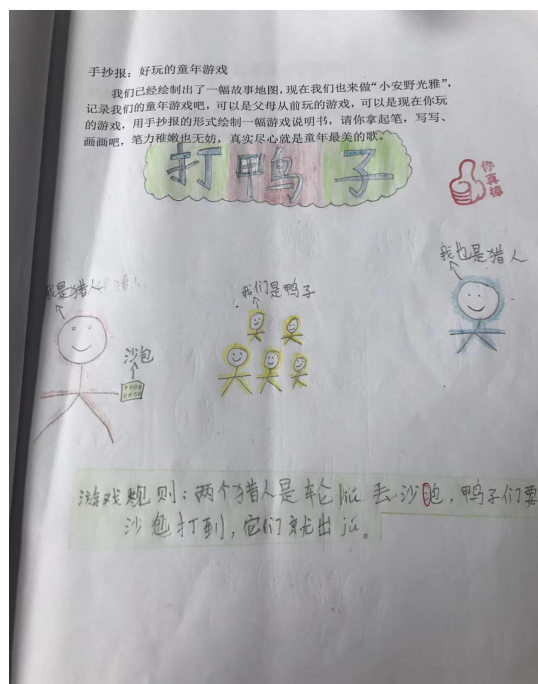 手抄报：好玩的童年游戏
我们已经绘制出了一幅故事地图，现在我们也来做“小安野光雅”，
记录我们的童年游戏吧，可以是父母从前玩的游戏，可以是现在你玩
的游戏，用手抄报的形式绘制一幅游戏说明书，请你拿起笔，写写、
画画吧，笔力稚嫩也无妨，真实尽心就是童年最美的歌。
打鸭子
你真棒
我也是猎人
我是猎人
我们是鸭子
沙包
游戏规则：两个猎人是轮liú丢沙包，鸭子们要
沙包打到，它们就出jú。